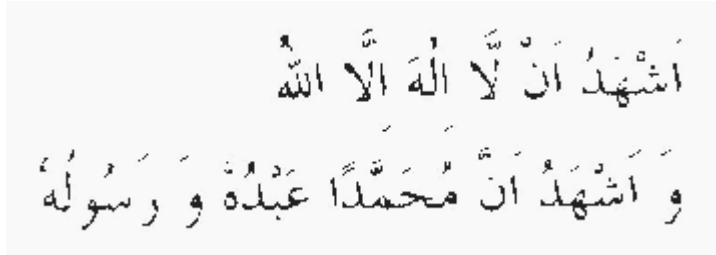 اَشْهَدُ اَنْ لَّا اِلٰهَ اِلَّا اللهُ
وَ اَشْهَدُ اَنَّ مُحَمَّدًا عَبْدُهٗ وَ رَسُولُهٗ